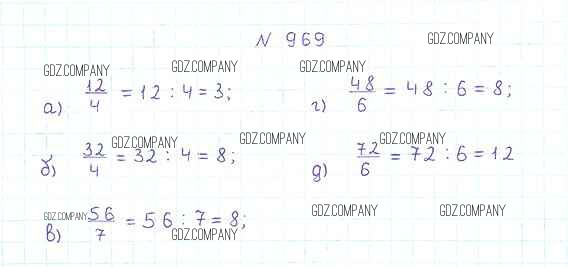 N 969
GDZ.COMPANY
GDZ.COMPANY GDZ.COMPANY GDZ.COMPANY
а) 12/4 = 12 : 4 = 3;
г) 48/6 = 48 : 6 = 8;
GDZ.COMPANY GDZ.COMPANY GDZ.COMPANY
б) 32/4 = 32 : 4 = 8;
д) 72/6 = 72 : 6 = 12
GDZ.COMPANY GDZ.COMPANY GDZ.COMPANY
в) 56/7 = 56 : 7 = 8;
GDZ.COMPANY